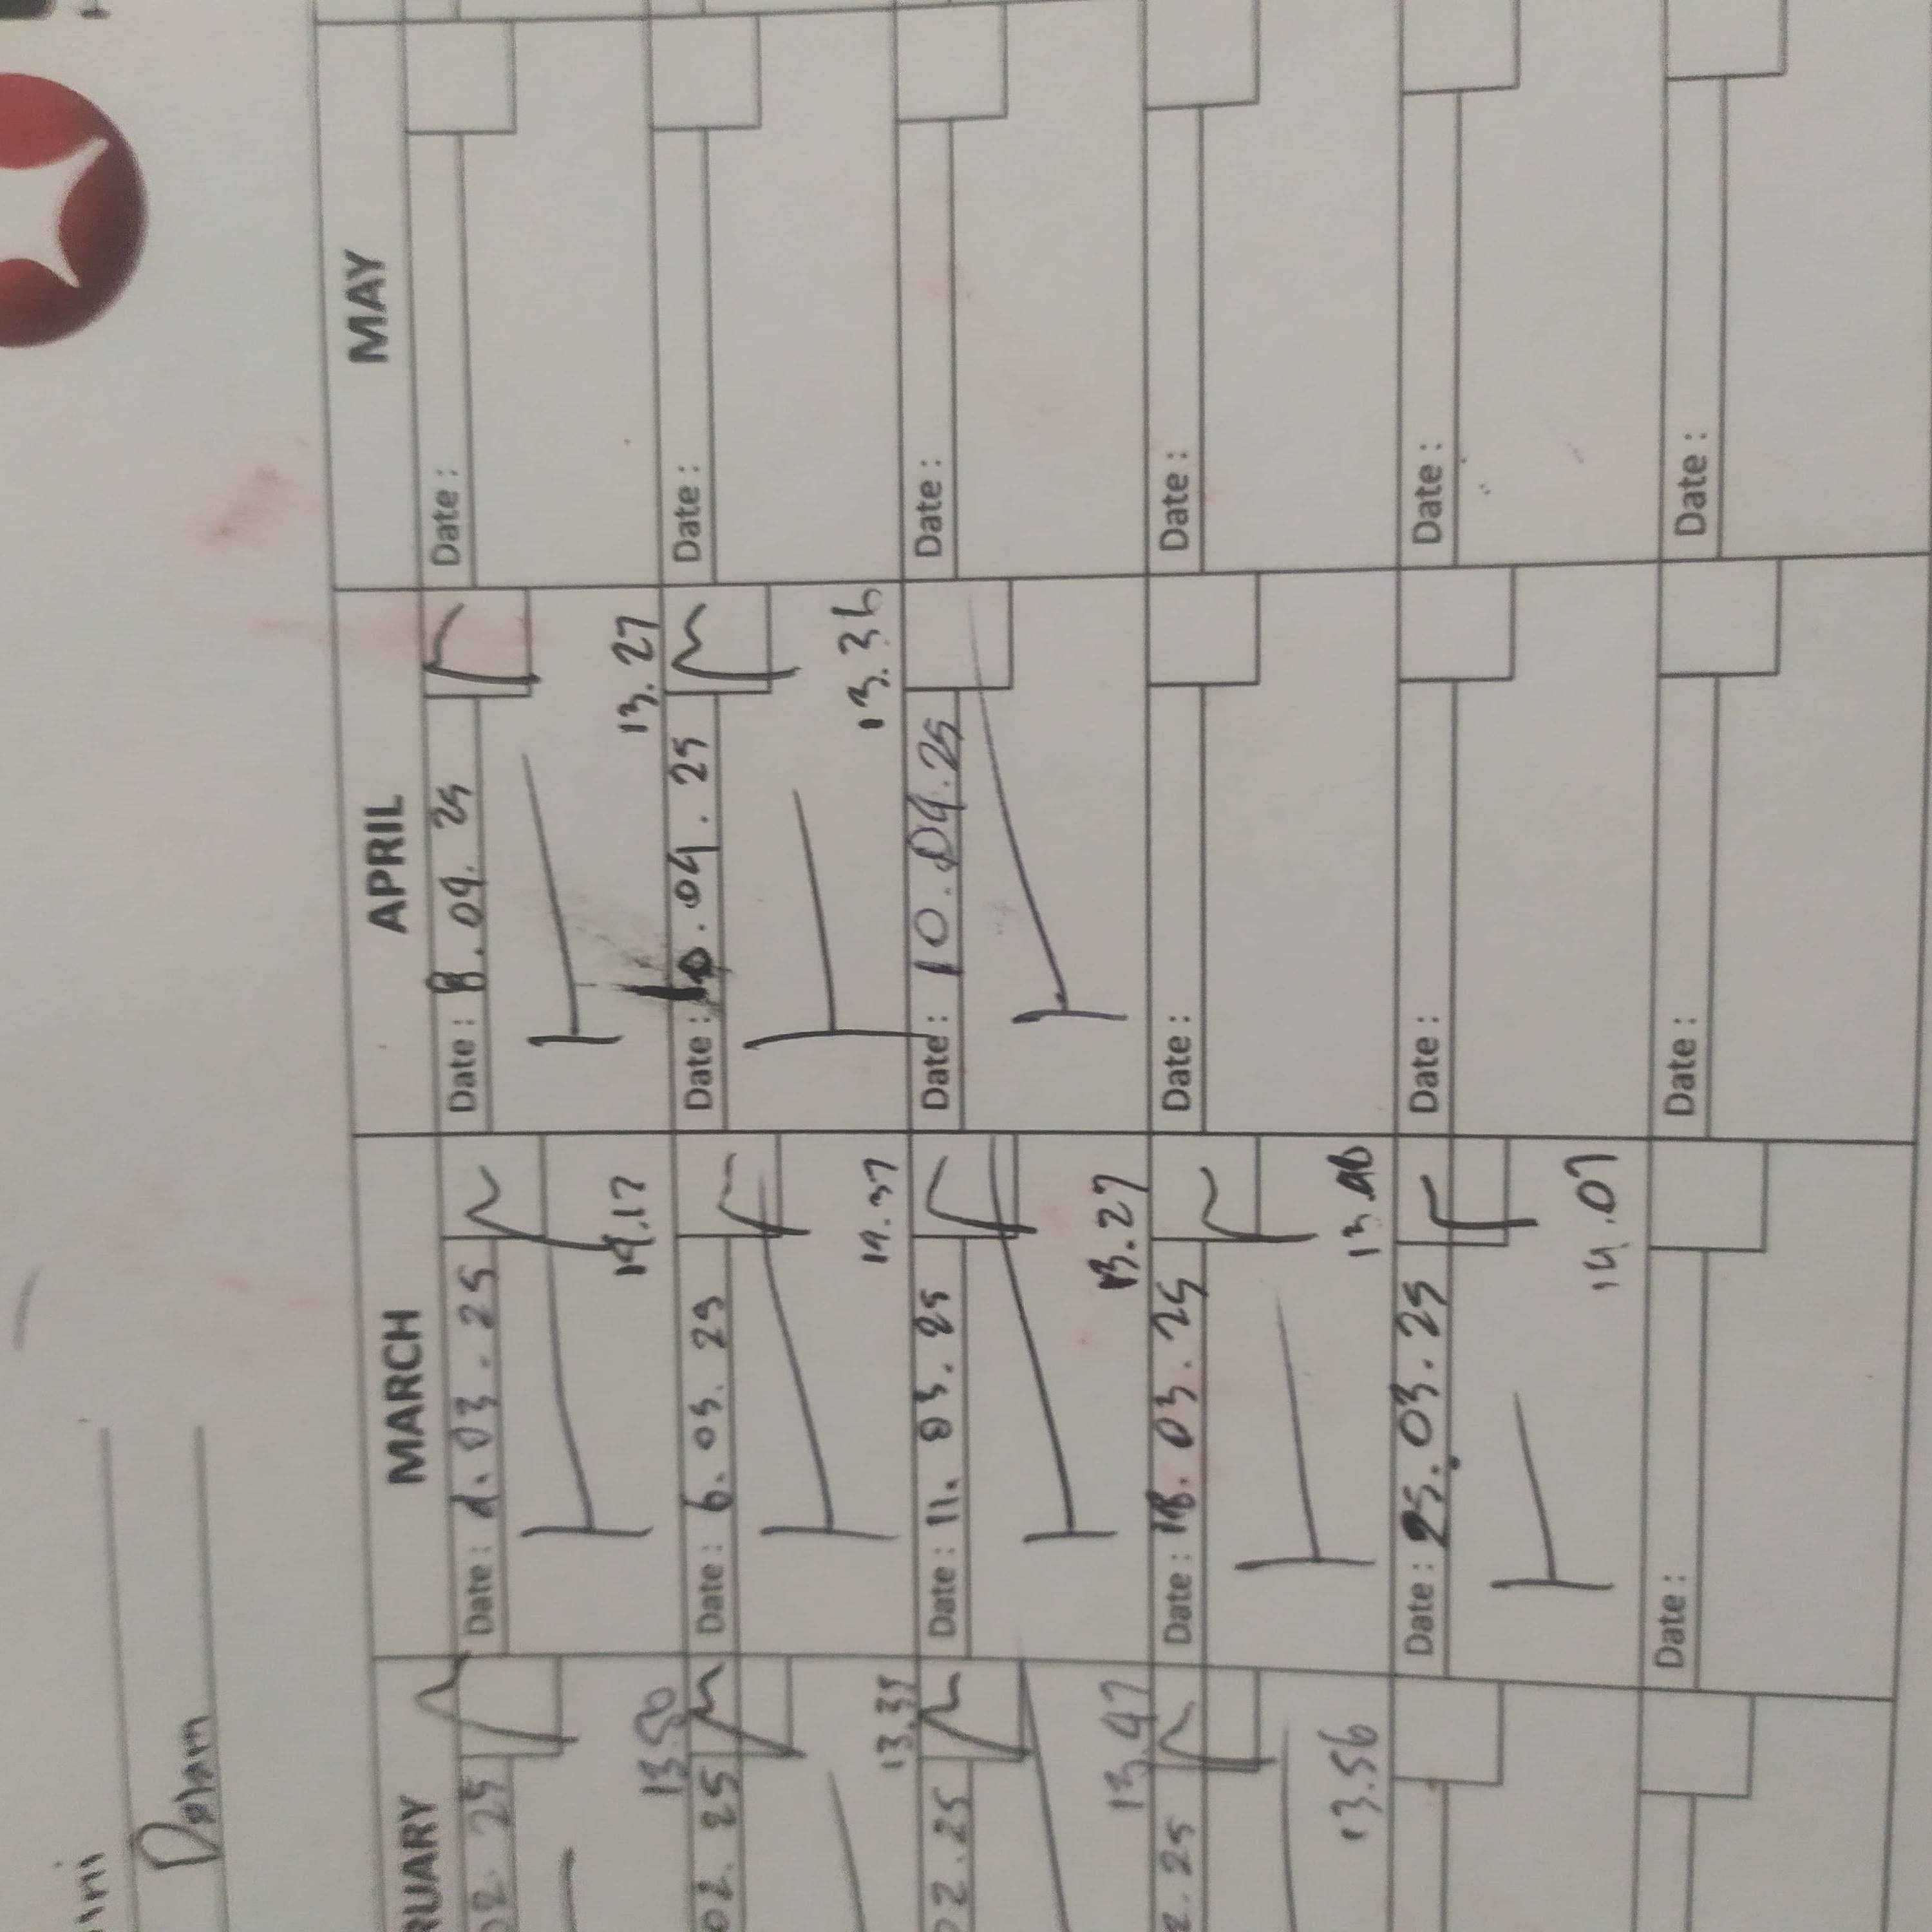 Dalam
RUARY
02. 25
13.50
02. 25
02.25
13.47
2.25
13.56
MARCH
Date : 03.25
14.17
Date : 6.03.25
14.37
Date : 11.03.25
13.27
Date : 18.03.25
Date : 25.03.25
14.07
Date :
APRIL
Date : 8.04.25
13.27
Date : 10.04.25
13.36
Date : 10.04.25
Date :
Date :
Date :
MAY
Date :
Date :
Date :
Date :
Date :
Date :